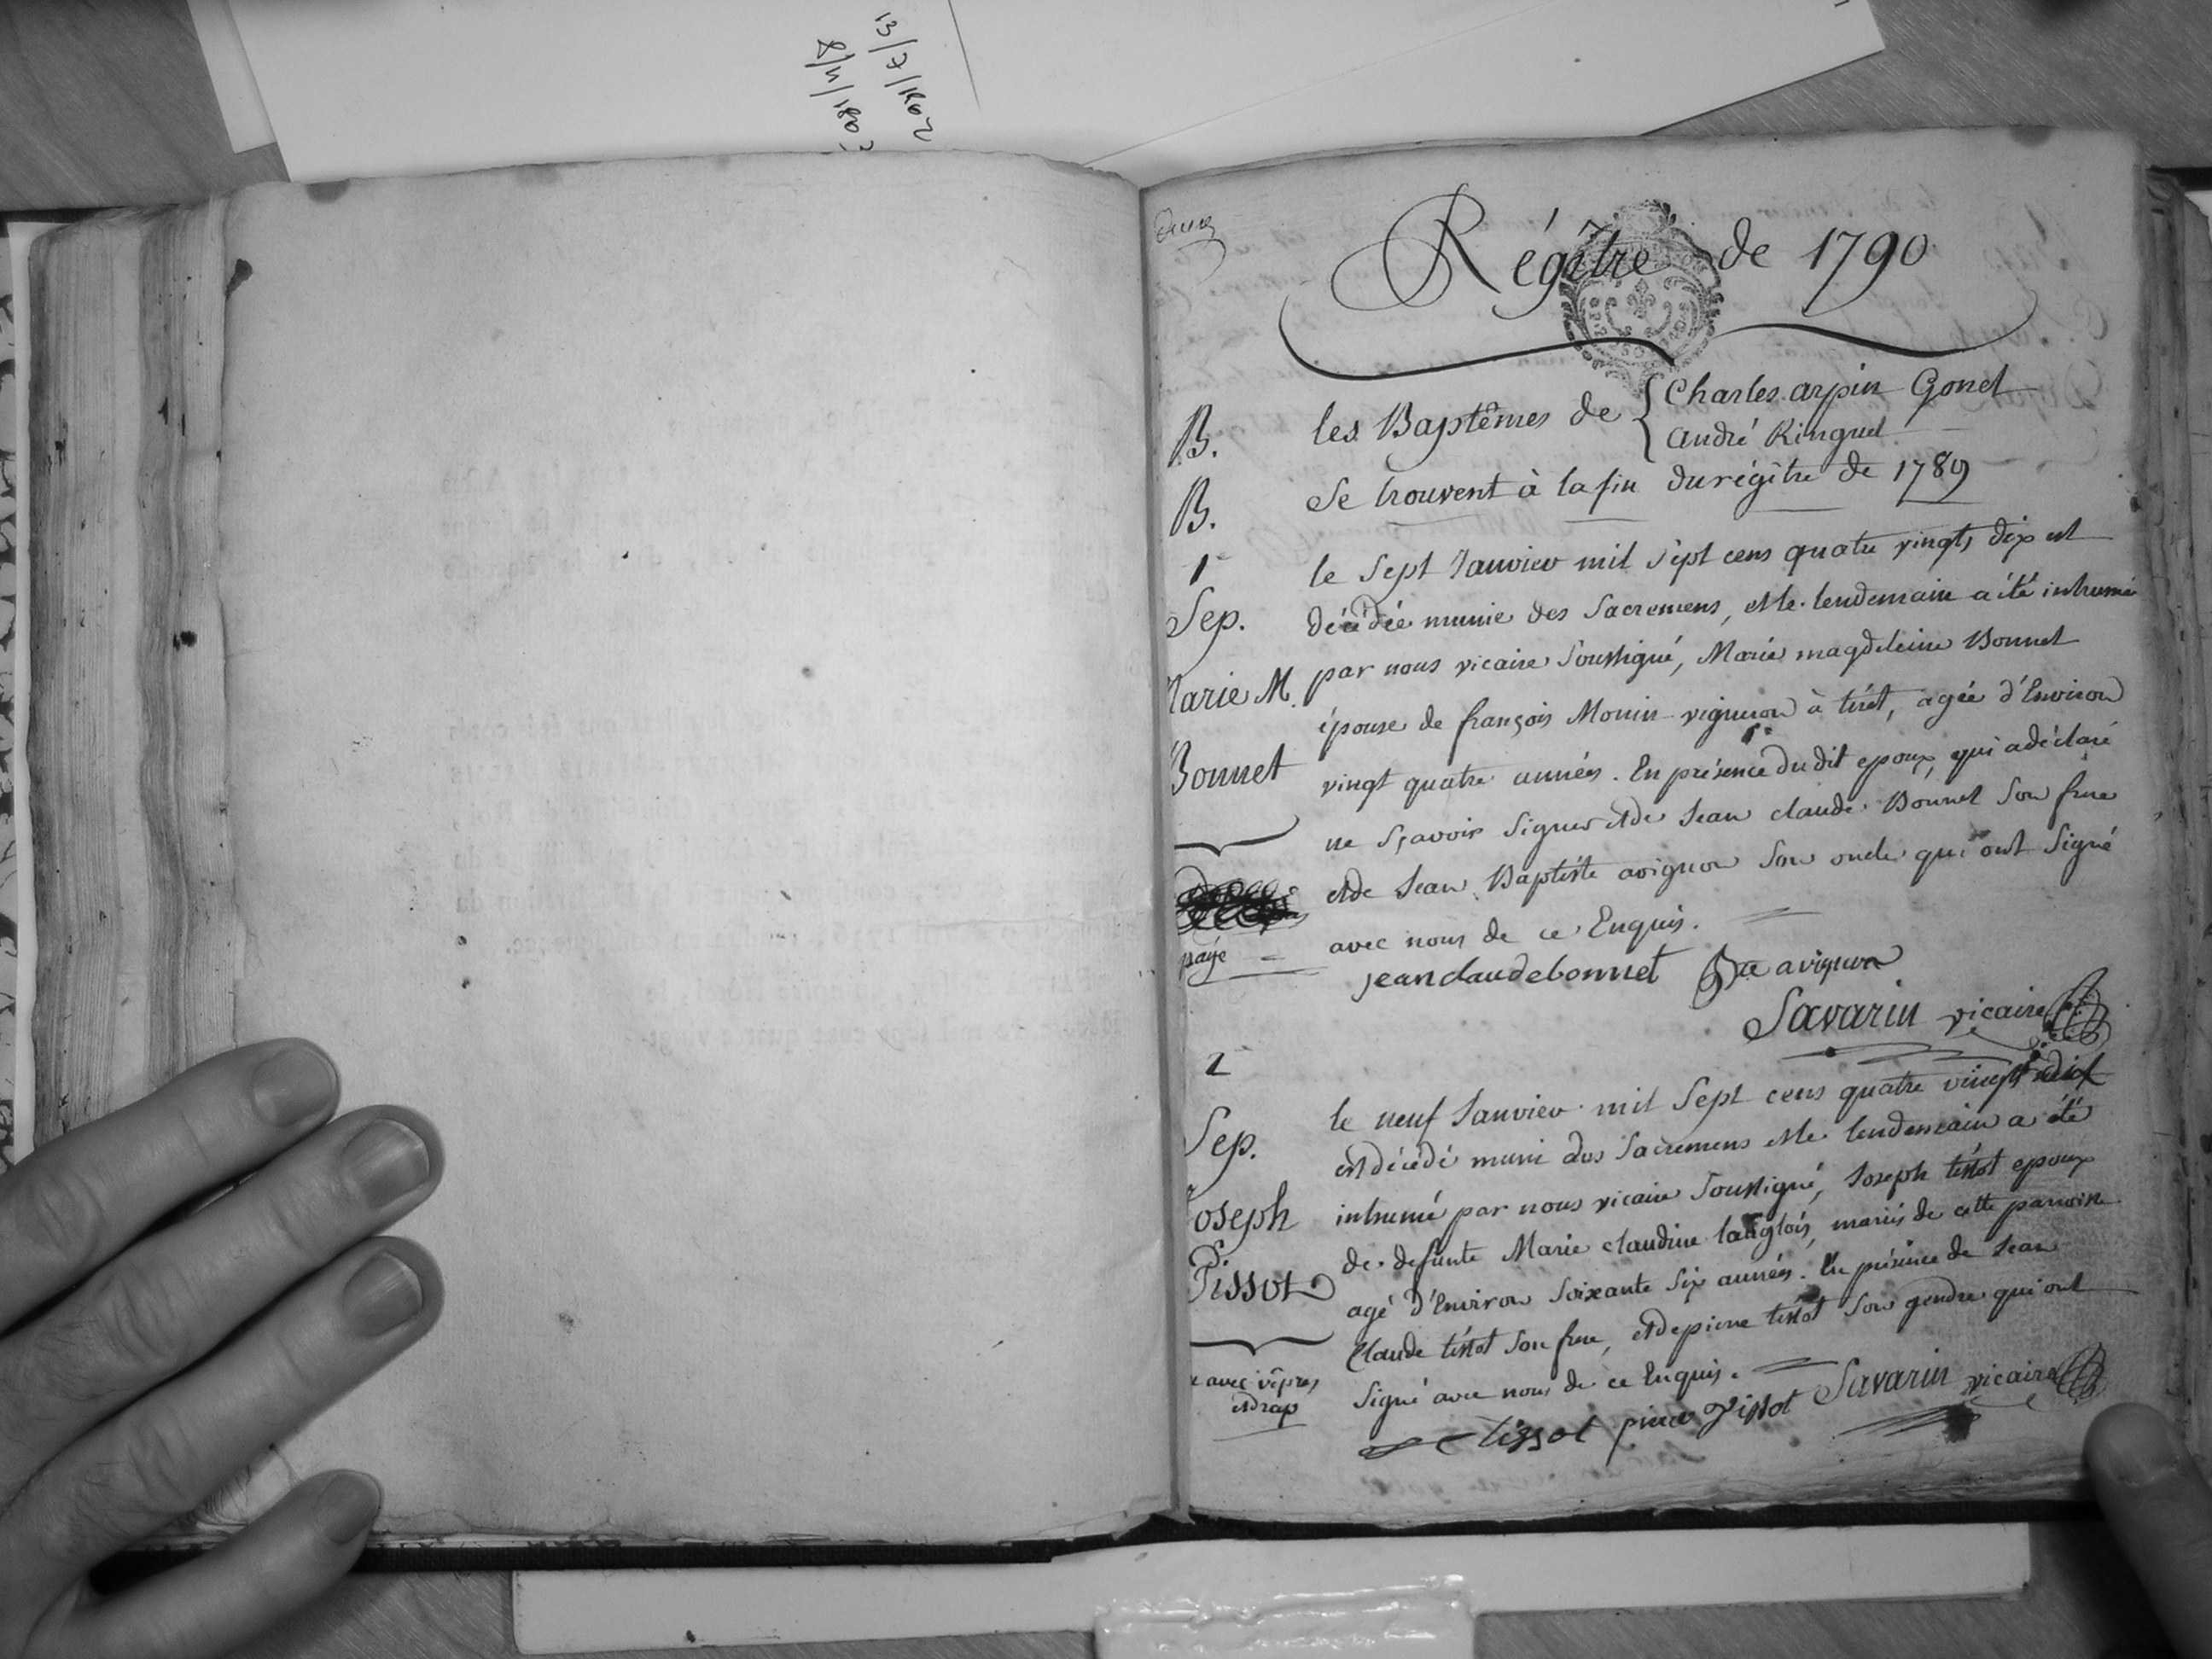 13/7/1802
8/11/1803
Régître de 1790
B. les Baptêmes de { Charles arpin Gonet
andré Ringuet
B. Se trouvent à la fin du régître de 1789
1
Sep.
Marie M.
Bonnet
payé
le Sept Janvier mil sept cens quatre vingts dix est
décédée munie des Sacremens, et le lendemain a été inhumée
par nous vicaire Soussigné, Marie magdeleine Bonnet
épouse de françois Monin vigneron à tirét, agée d'Environ
vingt quatre années. En présence du dit epoux, qui a déclaré
ne Sçavoir Signer et de Jean claude Bonnet Son frere
et de Jean Baptiste avignon Son oncle qui ont Signé
avec nous de ce Enquis.
jean claude bonnet Bte avignon
Savarin vicaire
2
Sep.
Joseph
Tissot
avec vêpres
et drap
le neuf Janvier mil Sept cens quatre vingts dix
est décédé muni des Sacremens et le lendemain a été
inhumé par nous vicaire Soussigné, Joseph tissot epoux
de defunte Marie claudine langlois, mariés de cette parroisse
agé d'Environ Soixante Six années. En présence de Jean
Claude tissot Son frere, et de pierre tissot Son gendre qui ont
Signé avec nous de ce Enquis.
tissot pierre Tissot Savarin vicaire